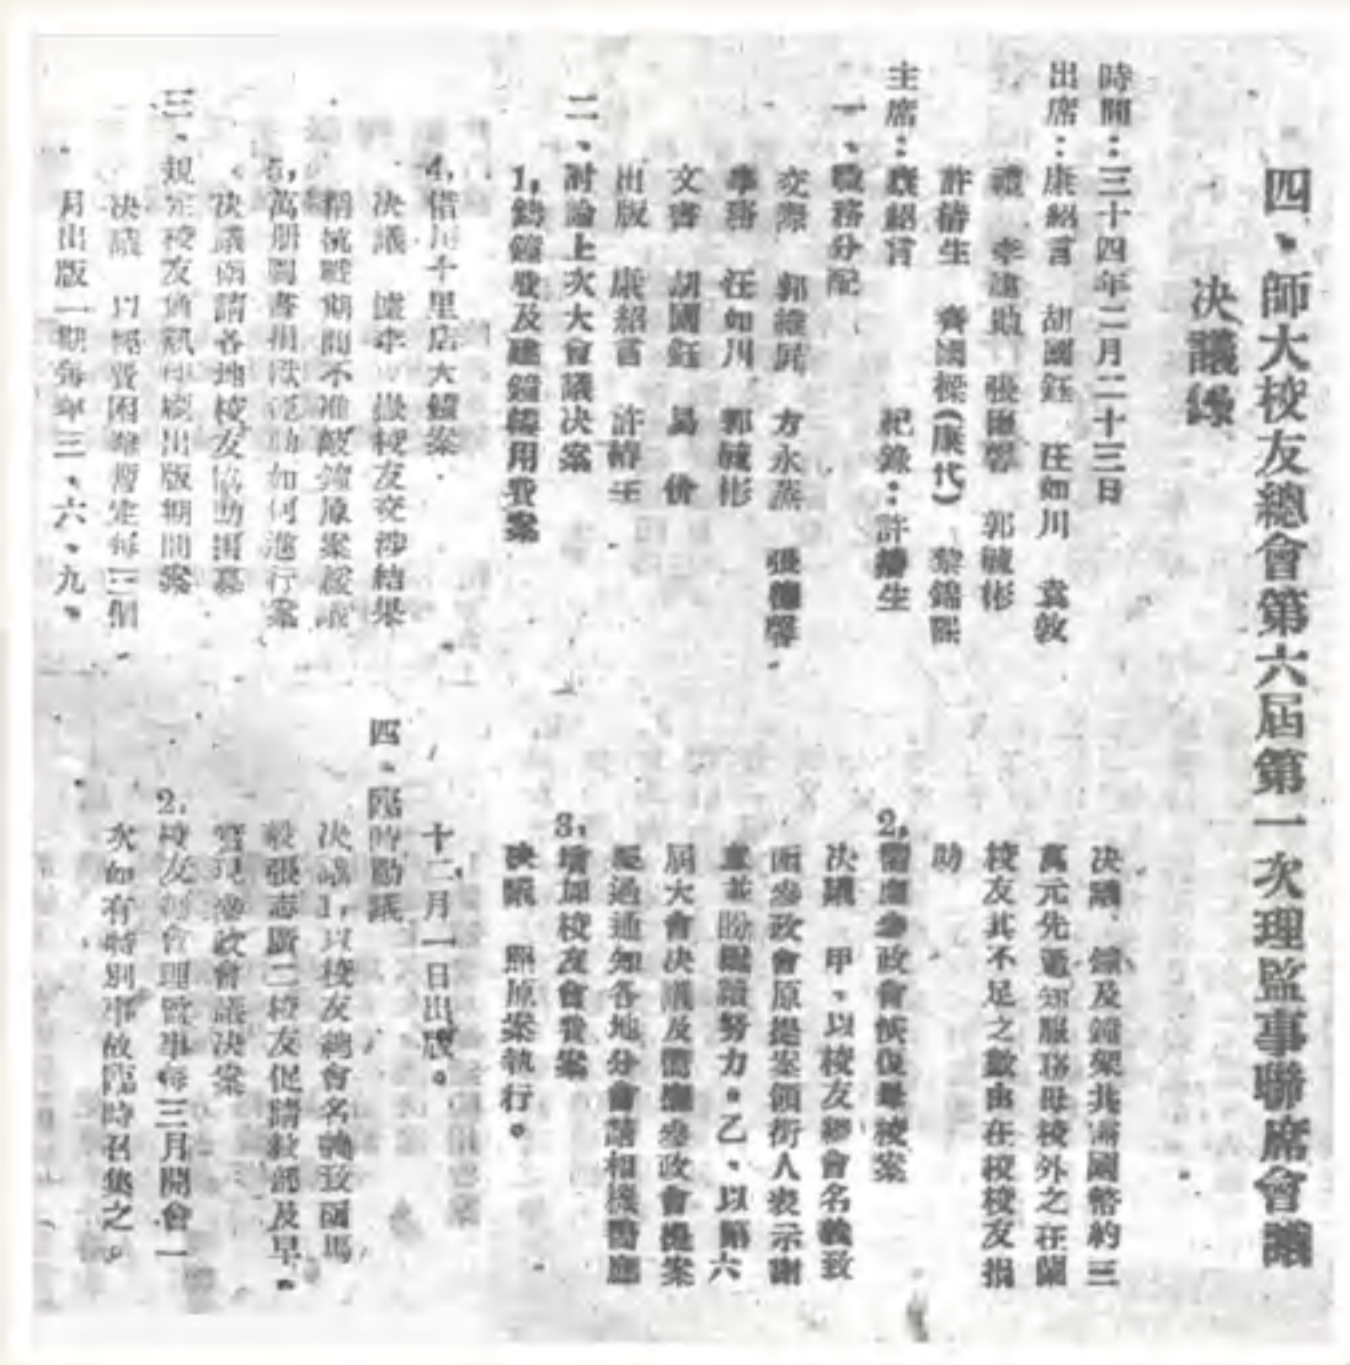 四、師大校友總會第六屆第一次理監事聯席會議
決議錄
時間：三十四年二月二十三日
出席：康紹言　胡國鈺　汪如川　袁敦
禮　李建勛　張德馨　郭毓彬
許椿生　齊國樑(康代)　黎錦熙
主席：康紹言　紀錄：許椿生
一、職務分配
交際　郭維屏　方永蒸　張德馨
事務　汪如川　郭毓彬
文書　胡國鈺　易价
出版　康紹言　許椿生
二、討論上次大會議決案
1,鑄鐘及建鐘樓用費案
決議　鐘及鐘架共需國幣約三
萬元先通知服務母校外之在蘭
校友其不足之數由在校校友捐
助
2,響應參政會恢復母校案
決議　甲、以校友總會名義致
函參政會原提案領銜人表示謝
意並盼繼續努力。乙、以第六
屆大會決議及響應參政會提案
經過通知各地分會請相機響應
3,增加校友會費案
決議　照原案執行。
4,借用十里店大鐘案
決議　校友交涉結果
抗戰期間不准敲鐘原案緩議
5,萬册圖書捐如何進行案
決議函請各地校友協助捐募
三、規定校友通訊出版期間案
決議　以經費困難暫定每三個
月出版一期每年三、六、九、
十二月一日出版。
四、臨時動議
決議1,以校友總會名義致函馬
張志廣二校友促請教部及早
實現參政會議決案
2,校友總會理監事每三月開會一
次如有特別事故臨時召集之。